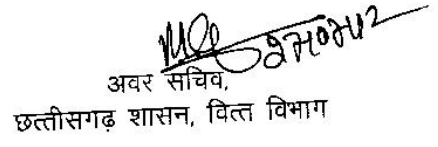 अवर सचिव,
छत्तीसगढ़ शासन, वित्त विभाग